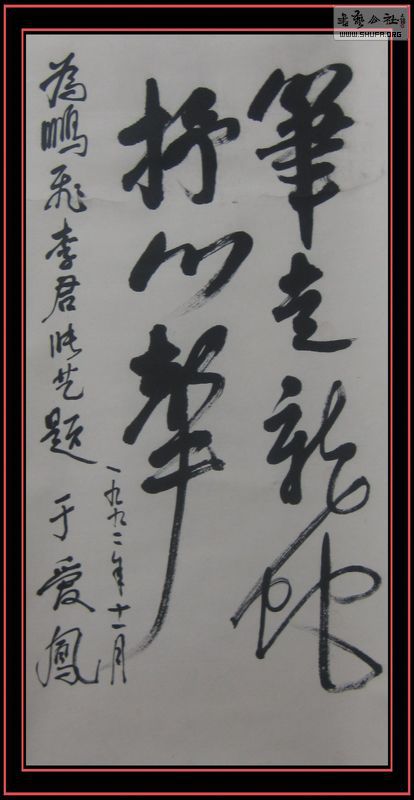 筆走龍蛇
抒心聲
為鵬飛李君 題
一九九二年十一月
于愛鳳
書藝公社
WWW.SHUFA.ORG